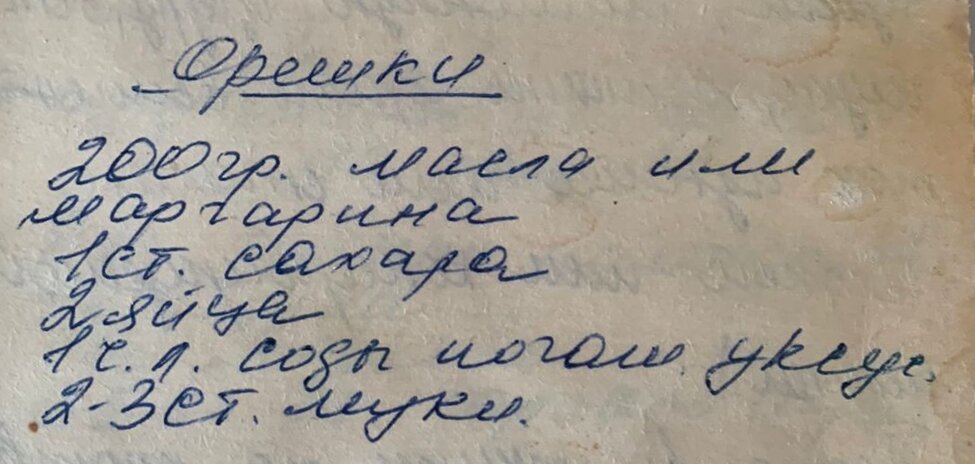 Орешки
200 гр. масла или
маргарина
1 ст. сахара
2 яйца
1 ч. л. соды погаш. уксус.
2-3 ст. муки.